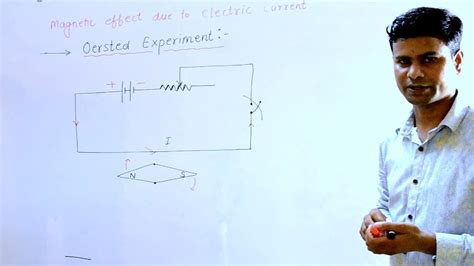 Magnetic effect due to electric current
→ Oersted Experiment :-
+ -
I
N S